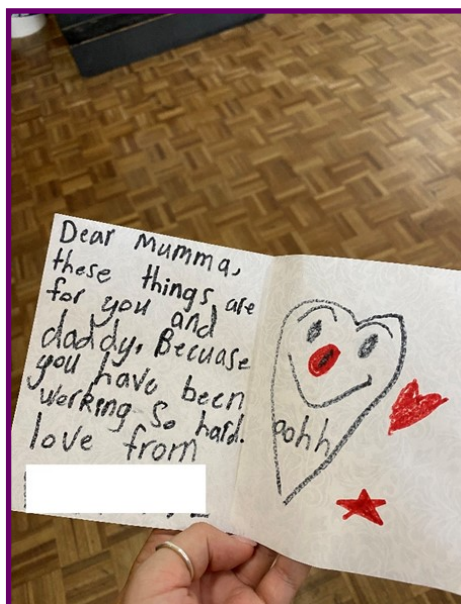 Dear Mumma,
these things are
for you and
daddy. Becuase
you have been
working so hard.
love from
oohh